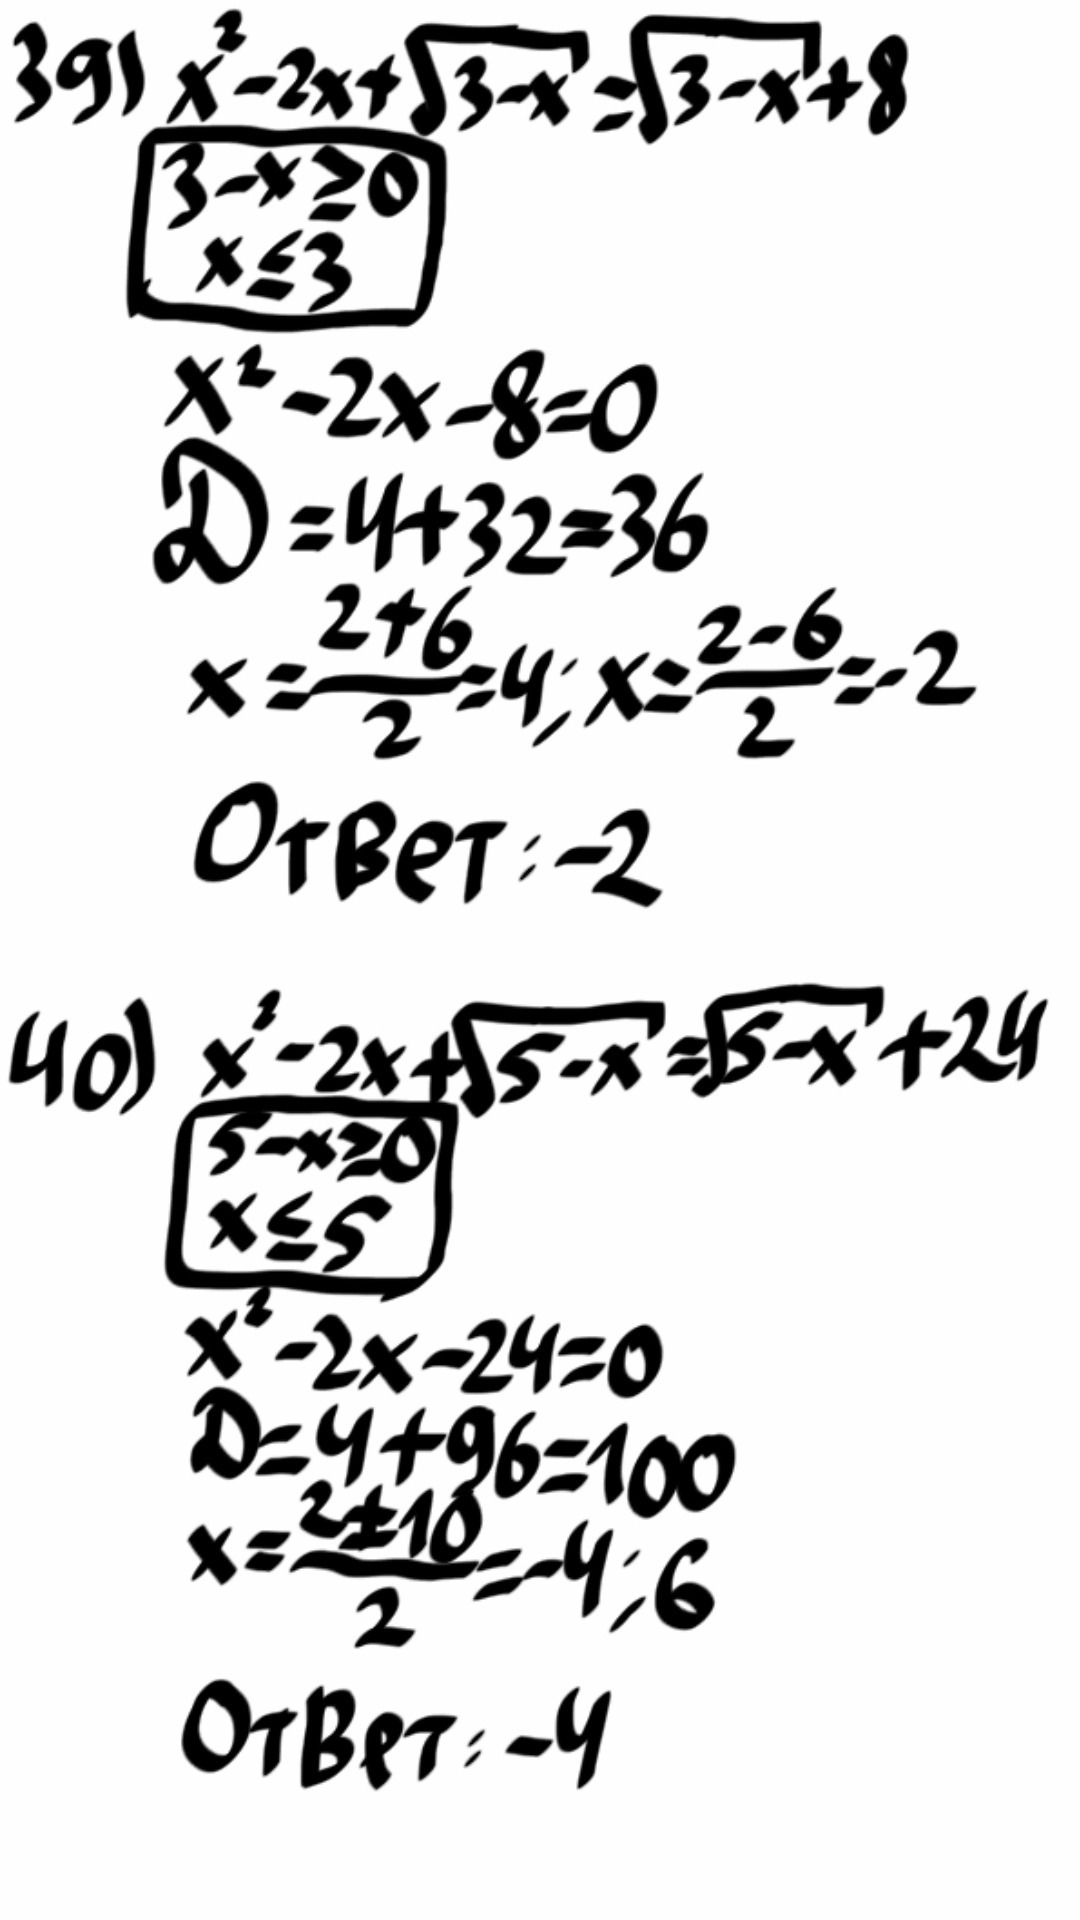 39) x²-2x+√3-x=√3-x+8
3-x≥0
x≤3
x²-2x-8=0
D=4+32=36
x=(2+6)/2=4; x=(2-6)/2=-2
Ответ: -2
40) x²-2x+√5-x=√5-x+24
5-x≥0
x≤5
x²-2x-24=0
D=4+96=100
x=(2±10)/2=-4; 6
Ответ: -4